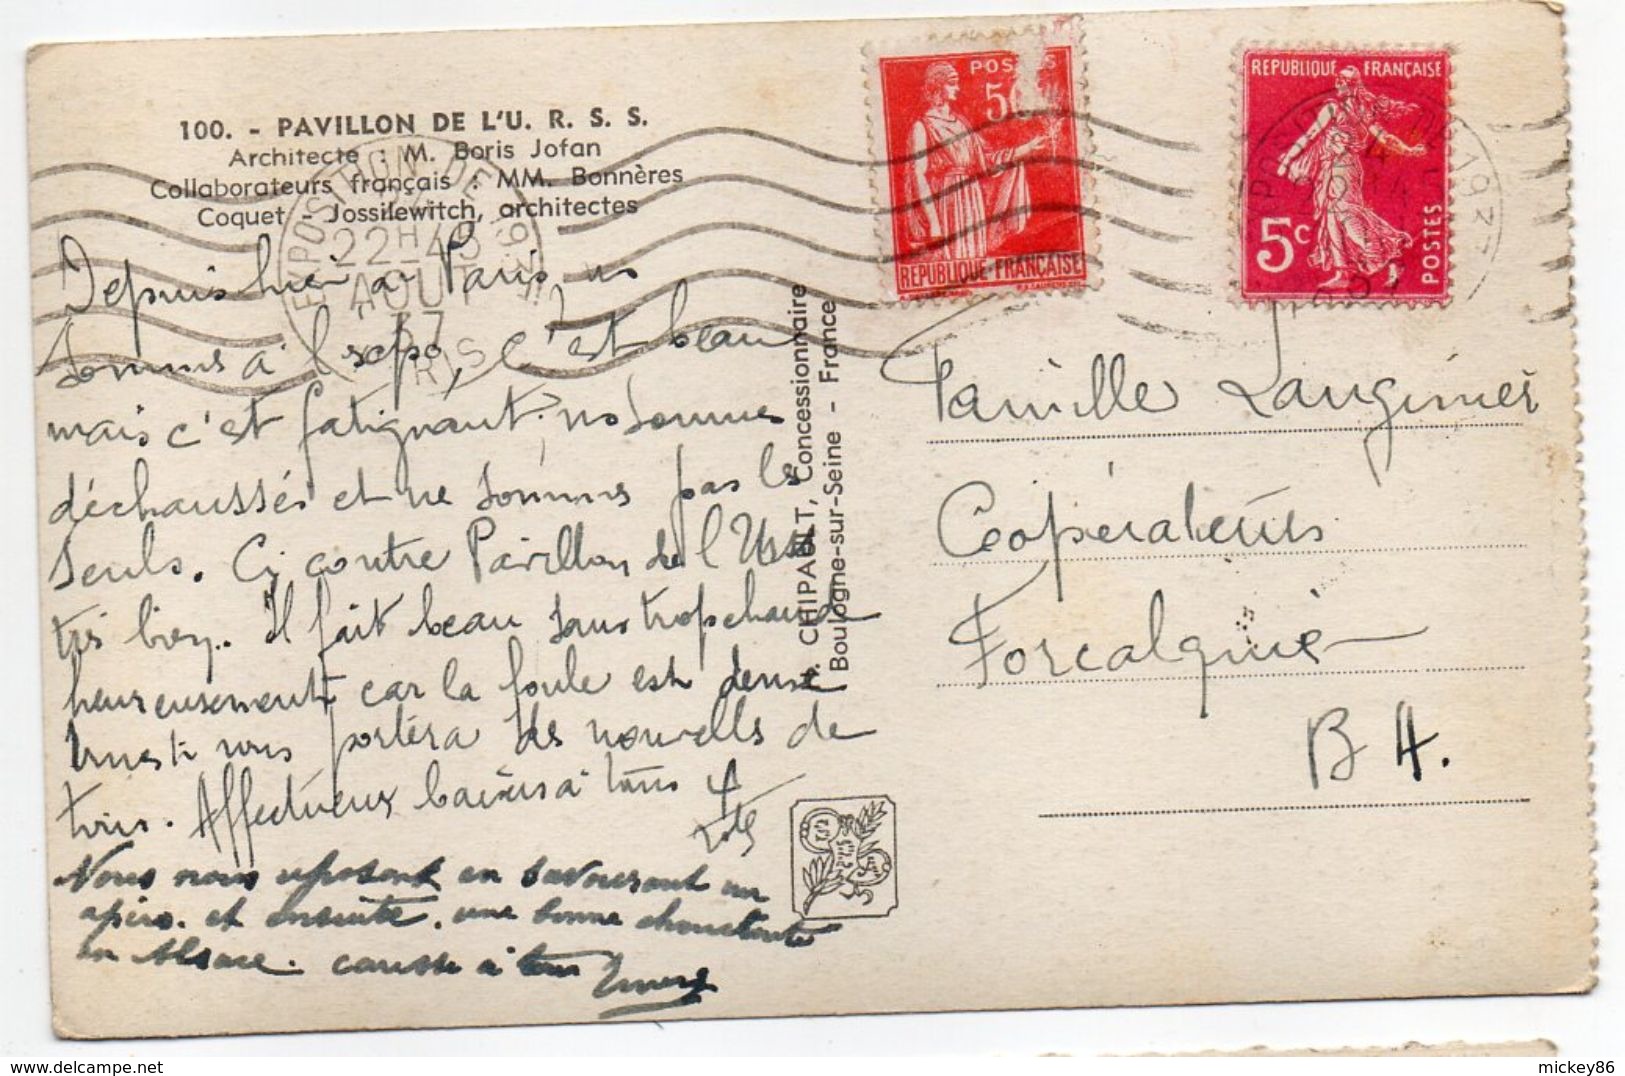 100. - PAVILLON DE L'U. R. S. S.
Architecte : M. Boris Jofan
Collaborateurs français : MM. Bonnères
Coquet - Jossilewitch, architectes
EXPOSITION
22H-45
AOUT
37
PARIS
POSTES
50
REPUBLIQUE-FRANÇAISE
REPUBLIQUE FRANÇAISE
5c
POSTES
Depuis hier à Paris, ns
sommes à l'expo, c'est beau
mais c'est fatigant. ns sommes
déchaussés et ne sommes pas les
seuls. Ci contre Pavillon de l'Urss
très bien. Il fait beau sans trop chaud
heureusement car la foule est dense
vous portera des nouvelles de
tous. Affectueux baisers à tous 4
Nous nous reposont en savourant un
apéro. et ensuite. une bonne choucroute
en Alsace. à tous
. CHIPAULT, Concessionnaire
Boulogne-sur-Seine - France
Famille Laugimier
Coopérateurs
Forcalquier
B A.
mickey86